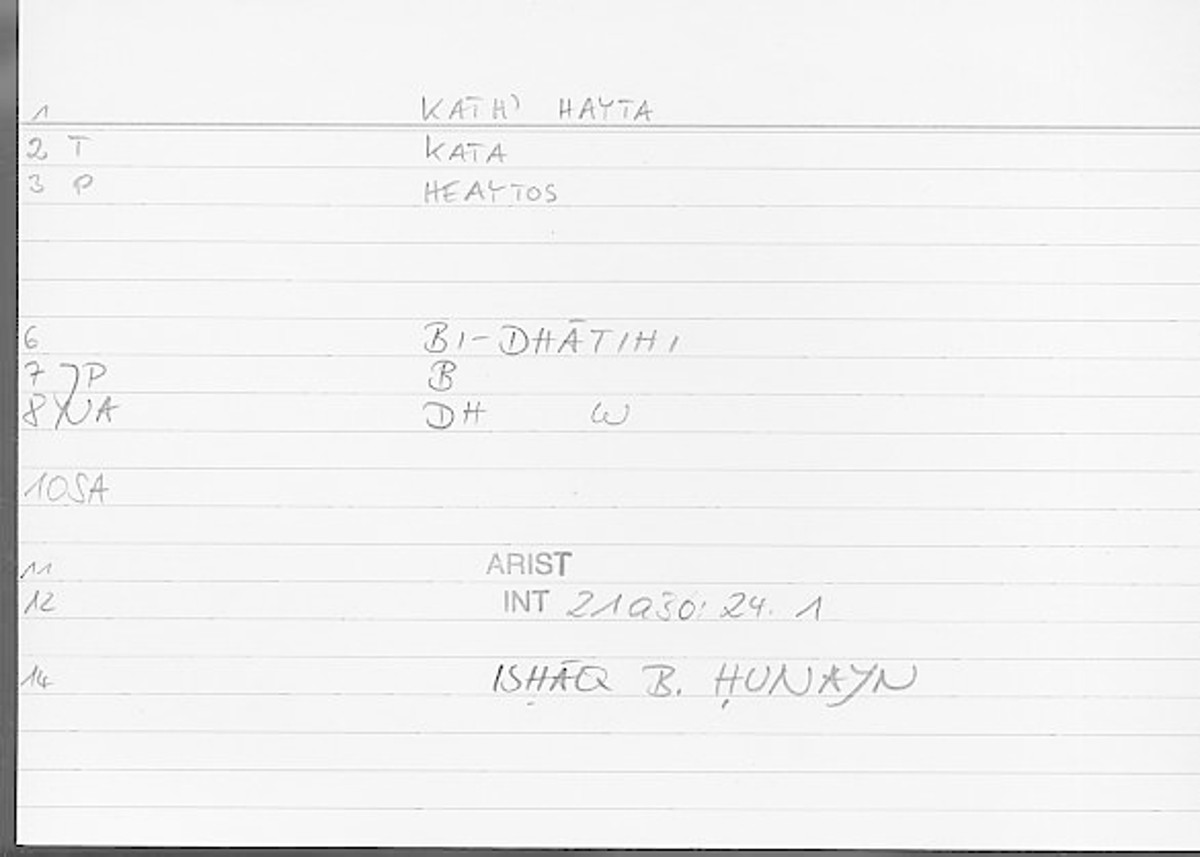 1 KATH' HAYTA
2 T KATA
3 P HEAYTOS
6 BI-DHĀTIHI
7 P B
8 NA DH W
10SA
11 ARIST
12 INT 21a30: 24. 1
14 ISḤĀQ B. ḤUNAYN